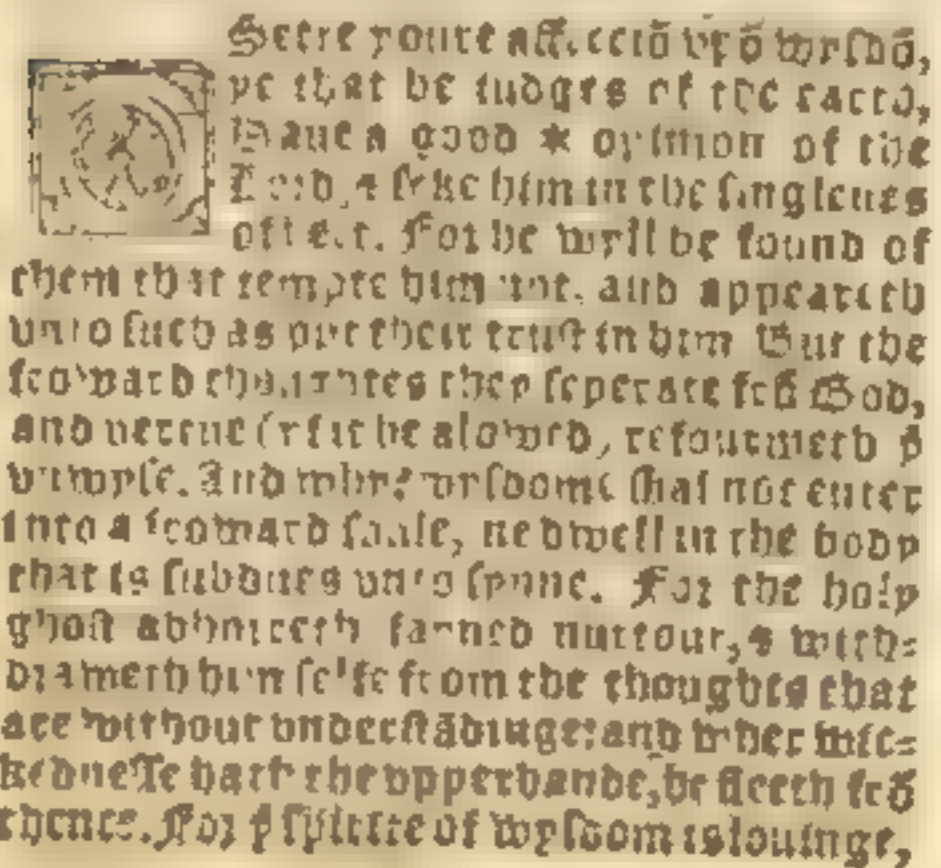 Sette youre affecciō vpō wyſdō,
ye that be iudges of the earth,
Haue a good * opinion of the
Lord, & ſeke him in the ſinglenes
of hert. For he wyll be found of
them that tempte him not, and appeareth
vnto ſuch as put their truſt in him. But the
frowarde thoughtes ſeperate frō God,
and vertue (yf it be alowed) refourmeth þͤ
vnwyſe. And why? wyſdome ſhal not enter
into a froward ſoule, ne dwell in the body
that is ſubdued vnto ſynne. For the holy
ghoſt abhorreth fayned nurtour, & with-
draweth him ſelfe from the thoughtes that
are without vnderſtādinge: and wher wic-
kedneſſe hath the vpperhande, he fleeth frō
thence. For þͤ ſpirite of wyſdom is louinge,